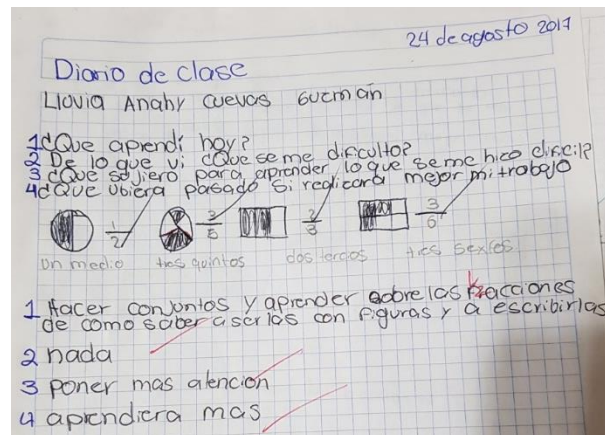 24 de agosto 2017
Diario de clase
Lluvia Anahy Cuevas Guzmán
1 ¿Que aprendí hoy?
2 De lo que vi ¿Que se me dificulto?
3 ¿Que sujiero para aprender lo que se me hico dificil?
4 ¿Que ubiera pasado si realicara mejor mi trabajo
1/2 3/5 2/3 3/6
un medio tres quintos dos tercios tres sextos
1 Hacer conjuntos y aprender sobre las fracciones
de como saber aserlas con figuras y a escribirlas
2 nada
3 poner mas atencion
4 aprendiera mas